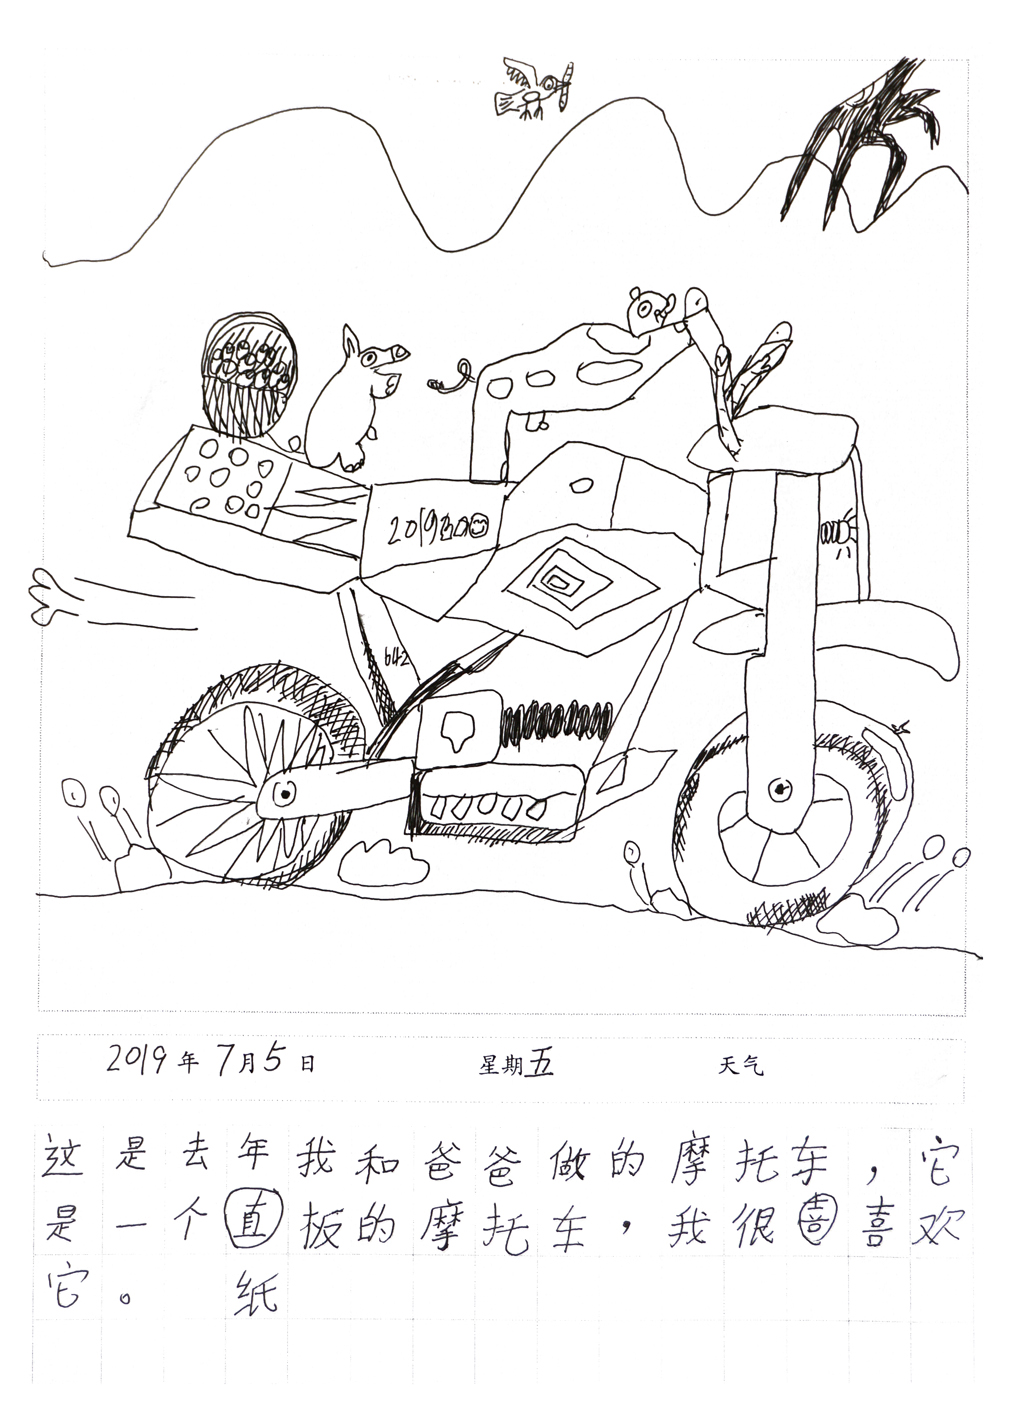 2019
642
2019年7月5日 星期五 天气
这是去年我和爸爸做的摩托车，它
是一个直板的摩托车，我很喜喜欢
它。 纸